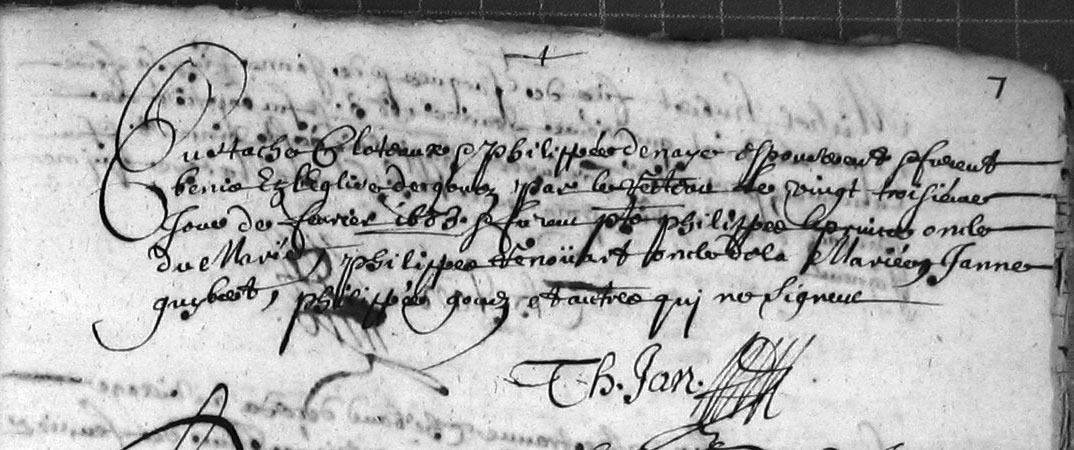 7
Eustache Clateaux & Philippes denays espouserent & furent
benis En l'eglise de par le Recteur le vingt troisiesme
Jour de febvrier 1633 & furent pnts philippes le prince oncle
du Marié, philippes Renoüart oncle de la Mariée, Janne
guybert, philippes goudz et autres qui ne signent
Th. Jan.